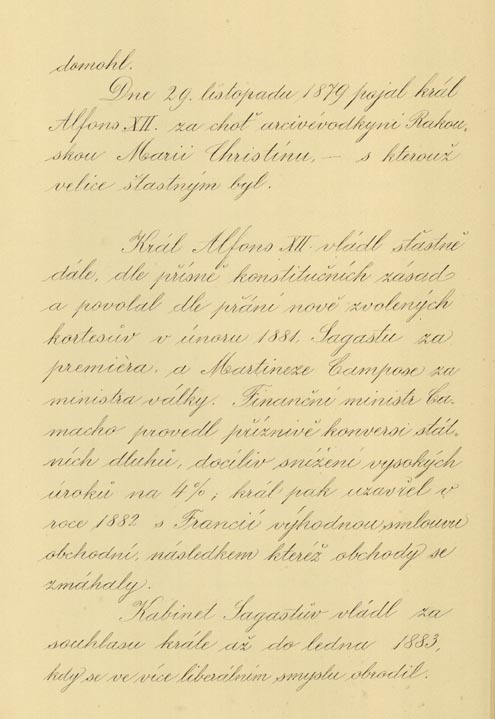 domohl.
Dne 29. listopadu 1879 pojal král
Alfons XII. za choť arcivévodkyni Rakou-
skou Marii Christinu, — s kterouž
velice šťastným byl.
Král Alfons XII. vládl šťastně
dále, dle přísně konstitučních zásad
a povolal dle přání nově zvolených
kortesův v únoru 1881, Sagastu za
premièra, a Martineze Campose za
ministra války. Finanční ministr Ca-
macho provedl příznivě konversi stát-
ních dluhů, docíliv snížení vysokých
úroků na 4%; král pak uzavřel v
roce 1882 s Francií výhodnou smlouvu
obchodní, následkem kteréž obchody se
zmáhaly.
Kabinet Sagastův vládl za
souhlasu krále až do ledna 1883,
kdy se ve více liberálním smyslu obrodil.